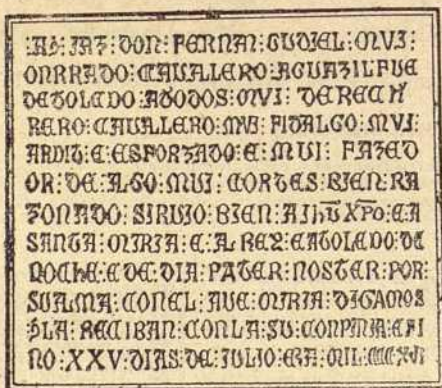 :AQI: IAZ: DON: FERNAN: GUDIEL: MUI:
ONRRADO: CAUALLERO: AGUAZIL FUE
DE TOLEDO: A TODOS: MUI: DERECH
RERO: CAUALLERO: MUI: FIDALGO: MUI:
ARDIT: E: ESFORZADO: E: MUI: FAZED
OR: DE: ALGO: MUI: CORTES: BIEN: RA
ZONADO: SIRUIO: BIEN: A IHU XPO: E A
SANTA: MIRIA: E: A REY: E A TOLEDO: DE
NOCHE: E DE: DIA: PATER: NOSTER: POR:
SU ALMA: CON EL: AUE: MIRIA: DIGAMOS
LA: RECIBAN: CON LA: SU: CONPNIA: E FI
NO: XXV: DIAS: DE: IULIO: ERA: MIL: